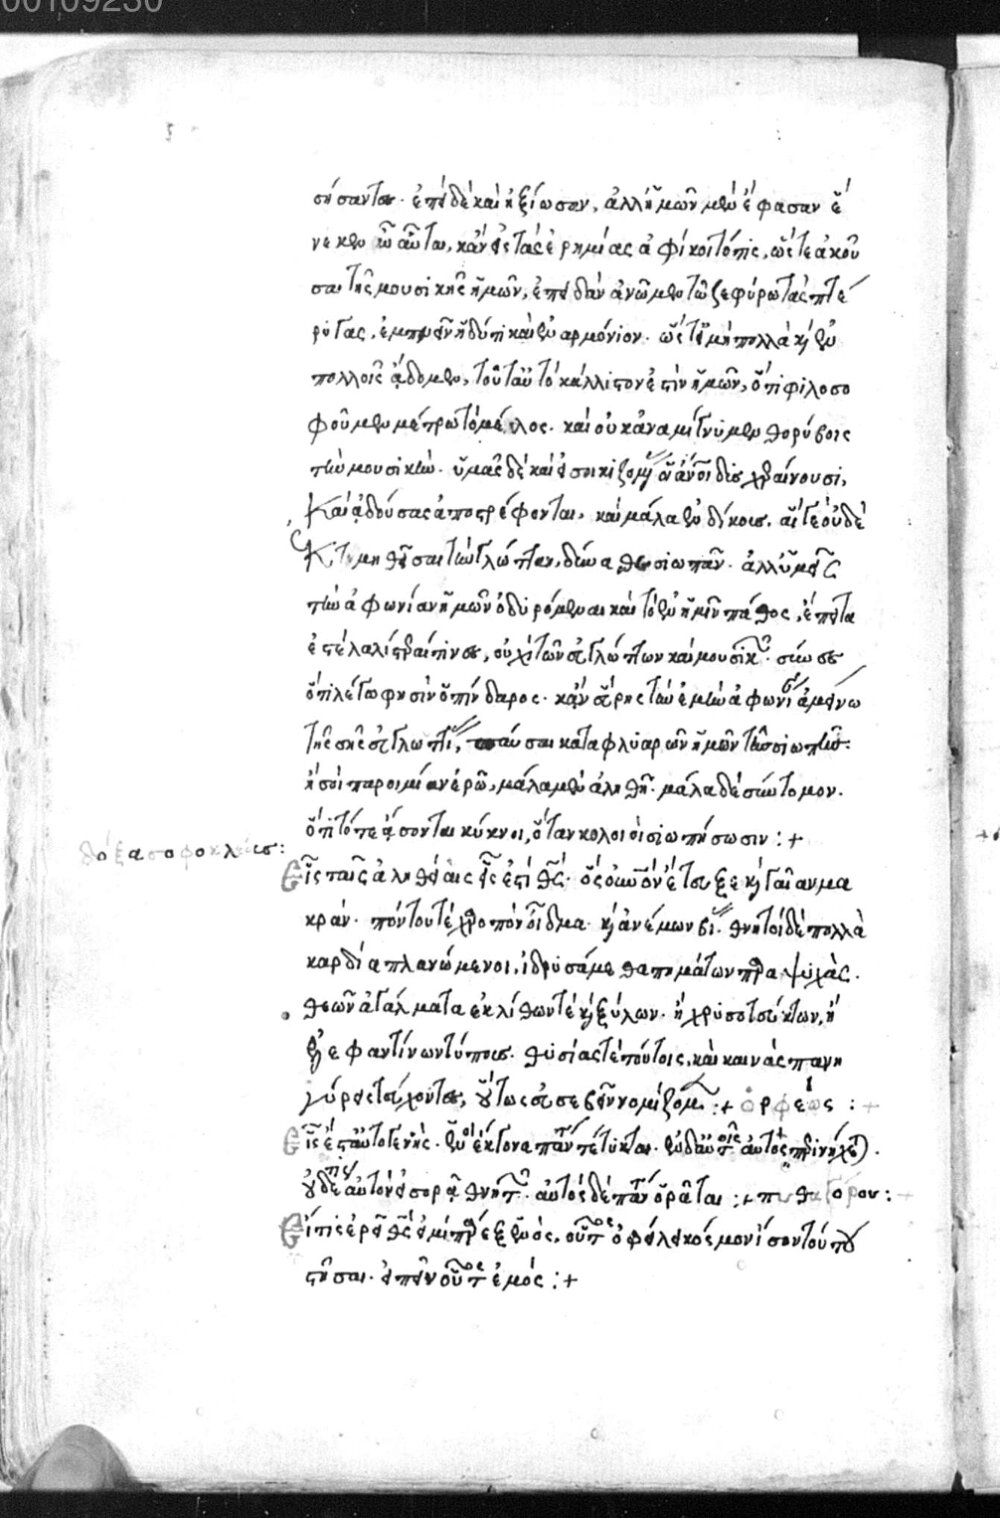 00109230
σήσαντες. ἐπεὶ δὲ καὶ ἠξίωσαν, ἀλλ' ἡμῶν μὲν ἔφασαν ἕ
νεκεν ὦ αὗται, κἂν εἰς τὰς ἐρημίας ἀφίκοιτό τις, ὥστε ἀκοῦ
σαι τῆς μουσικῆς ἡμῶν, ἐπειδὰν ἀνῶμεν τῶ ζεφύρω τὰς πτέ
ρυγας, ἐμπνεῖν ἡδύ τι καὶ ἐναρμόνιον. ὥστε εἰ μὴ πολλὰ καὶ ἐν
πολλοῖς ᾄδομεν, τοῦτ' αὐτὸ κάλλιστον ἐστὶν ἡμῶν, ὅτι φιλοσο
φοῦμεν μέτρω τὸ μέλος. καὶ οὐκ ἀναμίγνυμεν θορύβοις
τὴν μουσικήν. ὑμᾶς δὲ καὶ εἰσοικιζομένας οἱ ἄνθρωποι δυσχεραίνουσι,
καὶ ἀδούσας ἀποστρέφονται. καὶ μάλα ἐν δίκοις. αἵ γε οὐδὲ
τμηθεῖσαι τὴν γλῶτταν, δύνασθε σιωπᾶν. ἀλλ' ὑμεῖς
τὴν ἀφωνίαν ἡμῶν ὀδυρόμεναι καὶ τὸ ἐν ἡμῖν πάθος, ἔπειτα
ἐστὲ λαλίστεραί τινες, οὐχὶ τῶν εὐγλώττων καὶ μουσικῶν.
ὅτι λέγω φησὶν ὁ πίνδαρος. κἂν αἴρῃς τὴν ἐμὴν ἀφωνίαν ἀμείνω
τῆς σῆς εὐγλωττίας, παῦσαι καταφλυαρῶν ἡμῶν τὴν σιωπήν.
ἤ σοι παροιμίαν ἐρῶ, μάλα μὲν ἀληθῆ. μάλα δὲ σύντομον.
ὅτι τότε ᾄσονται κύκνοι, ὅταν κολοιοὶ σιωπήσωσιν :+
δόξα σοφοκλέους :
Εἷς ταῖς ἀληθείαις εἷς ἐστὶ θεός. ὃς οὐρανόν ἔτευξε καὶ γαῖαν μα
κράν. πόντου τε χαροπὸν οἶδμα. καὶ ἀνέμων βίας. θνητοὶ δὲ πολλὰ
καρδία πλανώμενοι, ἱδρυσάμεσθα πημάτων παραψυχάς.
θεῶν ἀγάλματα ἐκ λίθων τὲ καὶ ξύλων. ἢ χρυσοτεύκτων, ἢ
ἐλεφαντίνων τύπους. θυσίας τὲ τούτοις, καὶ καινὰς πανη
γύρεις τεύχοντες, οὕτως εὐσεβεῖν νομίζομεν :+ ὀρφέως :+
Εἷς ἔστ' αὐτογενής. ἑνὸς ἔκγονα πάντα τέτυκται. ἐν δ' αὐτοῖς αὐτὸς περινίσσεται.
οὐδέ τις αὐτὸν εἰσορᾷ θνητῶν. αὐτὸς δέ πάντας ὁρᾶται :+ πυθαγόρου :+
Εἴ τις ἐρεῖ θεός εἰμι πάρεξ ἑνός. οὗτος ὀφείλει κόσμον ἴσον τούτου
στῆσαι. εἰπεῖν οὗτος ἐμός :+